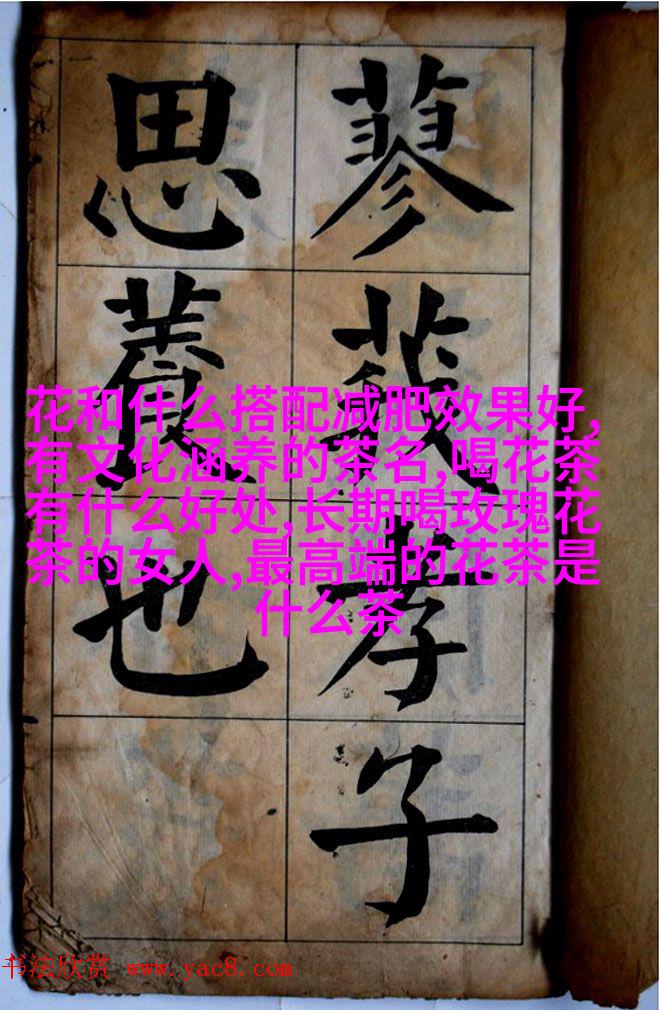 蓼莪孝子
思養也
花和什么搭配减肥效果好,
有文化涵养的茶名,喝花茶
有什么好处,长期喝玫瑰花
茶的女人,最高端的花茶是
什么茶
书法欣赏 www.yac8.com